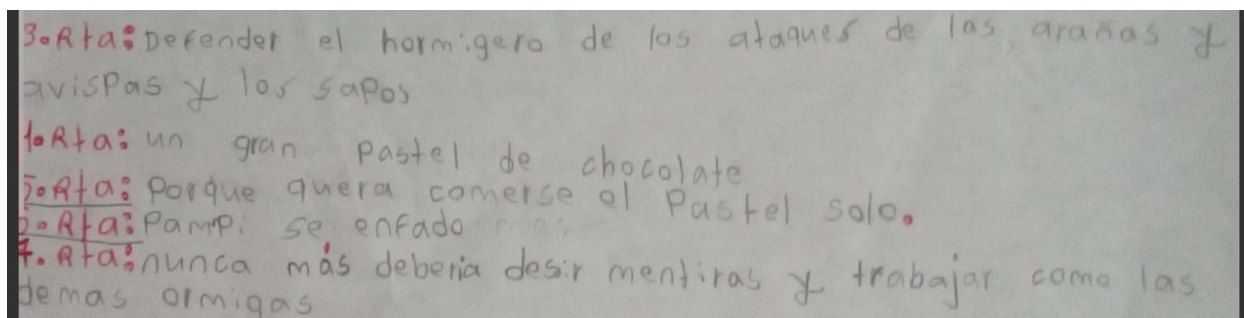 3.Rta: Defender el hormigero de los ataques de las arañas y
avispas y los sapos
Rta: un gran pastel de chocolate
5.Rta: Porque quera comerse el Pastel solo.
Rta: Pampi se enfado
7.Rta: nunca más deberia desir mentiras y trabajar como las
demas ormigas